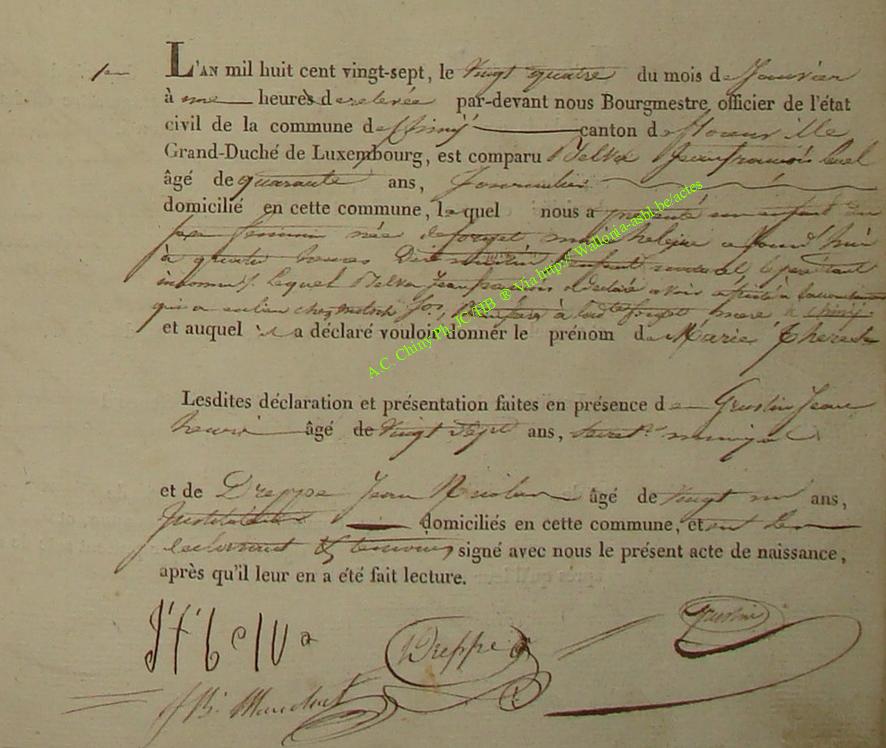 L'AN mil huit cent vingt-sept, le Vingt quatre du mois de Janvier
à une heures de relevée par-devant nous Bourgmestre, officier de l'état
civil de la commune de Chiny canton de florenville
Grand-Duché de Luxembourg, est comparu Belva Jean françois
âgé de quarante ans, Journalier
domicilié en cette commune, lequel nous a présenté un enfant du
sexe féminin née de forget marie helene aujourd'hui
à quatre heures du matin enfant naturel, le père étant
inconnu. lequel Belva jean françois déclare avoir assisté à l'accouchement
qui a eu lieu chez
et auquel il a déclaré vouloir donner le prénom de Marie Therese
Lesdites déclaration et présentation faites en présence de Grustin Jean
henri âgé de vingt sept ans,
et de Dreppe Jean Nicolas âgé de vingt un ans,
Instituteur domiciliés en cette commune, et ont les
déclarant et témoins signé avec nous le présent acte de naissance,
après qu'il leur en a été fait lecture.
J f belva
Dreppe
Grustin
A.C. Chiny Ph. JC/HB ® Via http://Wallonia-asbl.be/actes